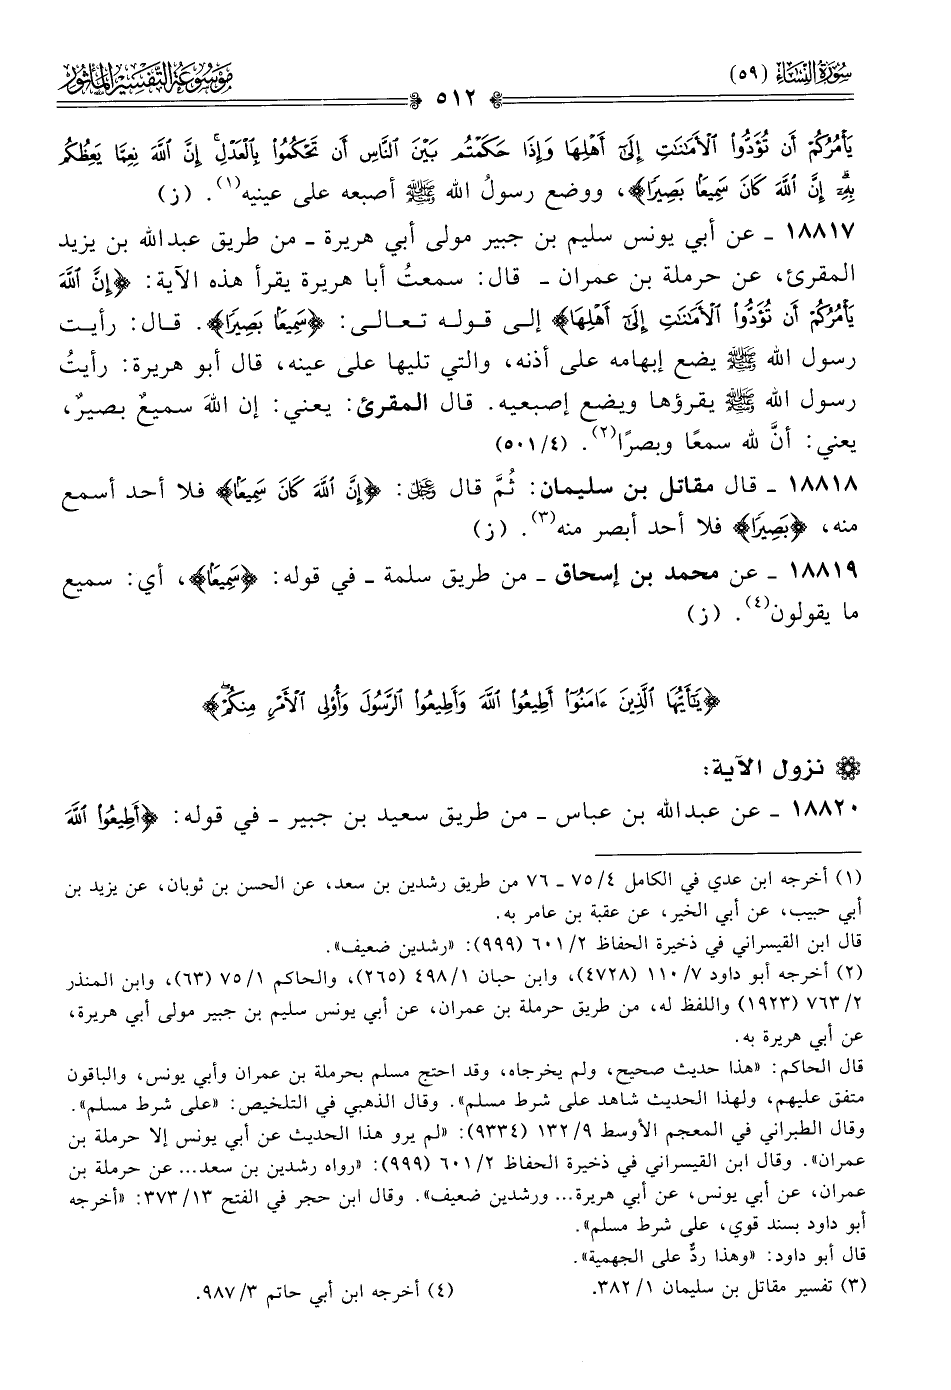 سُورَةُ النِّسَاءِ (٥٩)
٥١٢
مَوْسُوعَةُ التَّفْسِيرِ المَأْثُورِ
يَأْمُرُكُمْ أَن تُؤَدُّواْ ٱلْأَمَـٰنَـٰتِ إِلَىٰٓ أَهْلِهَا وَإِذَا حَكَمْتُم بَيْنَ ٱلنَّاسِ أَن تَحْكُمُواْ بِٱلْعَدْلِ ۚ إِنَّ ٱللَّهَ نِعِمَّا يَعِظُكُم
بِهِۦٓ ۗ إِنَّ ٱللَّهَ كَانَ سَمِيعًۢا بَصِيرًا﴾، ووضع رسولُ الله ﷺ أصبعه على عينيه(١). (ز)
١٨٨١٧ ـ عن أبي يونس سليم بن جبير مولى أبي هريرة ـ من طريق عبدالله بن يزيد
المقرئ، عن حرملة بن عمران ـ قال: سمعتُ أبا هريرة يقرأ هذه الآية: ﴿إِنَّ ٱللَّهَ
يَأْمُرُكُمْ أَن تُؤَدُّواْ ٱلْأَمَـٰنَـٰتِ إِلَىٰٓ أَهْلِهَا﴾ إلى قوله تعالى: ﴿سَمِيعًۢا بَصِيرًا﴾. قال: رأيت
رسول الله ﷺ يضع إبهامه على أذنه، والتي تليها على عينه، قال أبو هريرة: رأيتُ
رسول الله ﷺ يقرؤها ويضع إصبعيه. قال المقرئ: يعني: إن اللهَ سميعٌ بصيرٌ،
يعني: أنَّ لله سمعًا وبصرًا(٢). (٥٠١/٤)
١٨٨١٨ ـ قال مقاتل بن سليمان: ثُمَّ قال ﷻ: ﴿إِنَّ ٱللَّهَ كَانَ سَمِيعًۢا﴾ فلا أحد أسمع
منه، ﴿بَصِيرًا﴾ فلا أحد أبصر منه(٣). (ز)
١٨٨١٩ ـ عن محمد بن إسحاق ـ من طريق سلمة ـ في قوله: ﴿سَمِيعًۢا﴾، أي: سميع
ما يقولون(٤). (ز)
﴿يَـٰٓأَيُّهَا ٱلَّذِينَ ءَامَنُوٓاْ أَطِيعُواْ ٱللَّهَ وَأَطِيعُواْ ٱلرَّسُولَ وَأُوْلِى ٱلْأَمْرِ مِنكُمْ ۖ﴾
نزول الآية:
١٨٨٢٠ ـ عن عبدالله بن عباس ـ من طريق سعيد بن جبير ـ في قوله: ﴿أَطِيعُواْ ٱللَّهَ
(١) أخرجه ابن عدي في الكامل ٤/ ٧٥ ـ ٧٦ من طريق رشدين بن سعد، عن الحسن بن ثوبان، عن يزيد بن
أبي حبيب، عن أبي الخير، عن عقبة بن عامر به.
قال ابن القيسراني في ذخيرة الحفاظ ٢/ ٦٠١ (٩٩٩): «رشدين ضعيف».
(٢) أخرجه أبو داود ٧/ ١١٠ (٤٧٢٨)، وابن حبان ١/ ٤٩٨ (٢٦٥)، والحاكم ١/ ٧٥ (٦٣)، وابن المنذر
٢/ ٧٦٣ (١٩٢٣) واللفظ له، من طريق حرملة بن عمران، عن أبي يونس سليم بن جبير مولى أبي هريرة،
عن أبي هريرة به.
قال الحاكم: «هذا حديث صحيح، ولم يخرجاه، وقد احتج مسلم بحرملة بن عمران وأبي يونس، والباقون
متفق عليهم، ولهذا الحديث شاهد على شرط مسلم». وقال الذهبي في التلخيص: «على شرط مسلم».
وقال الطبراني في المعجم الأوسط ٩/ ١٣٢ (٩٣٣٤): «لم يرو هذا الحديث عن أبي يونس إلا حرملة بن
عمران». وقال ابن القيسراني في ذخيرة الحفاظ ٢/ ٦٠١ (٩٩٩): «رواه رشدين بن سعد... عن حرملة بن
عمران، عن أبي يونس، عن أبي هريرة... ورشدين ضعيف». وقال ابن حجر في الفتح ١٣/ ٣٧٣: «أخرجه
أبو داود بسند قوي، على شرط مسلم».
قال أبو داود: «وهذا ردٌّ على الجهمية».
(٣) تفسير مقاتل بن سليمان ١/ ٣٨٢.
(٤) أخرجه ابن أبي حاتم ٣/ ٩٨٧.